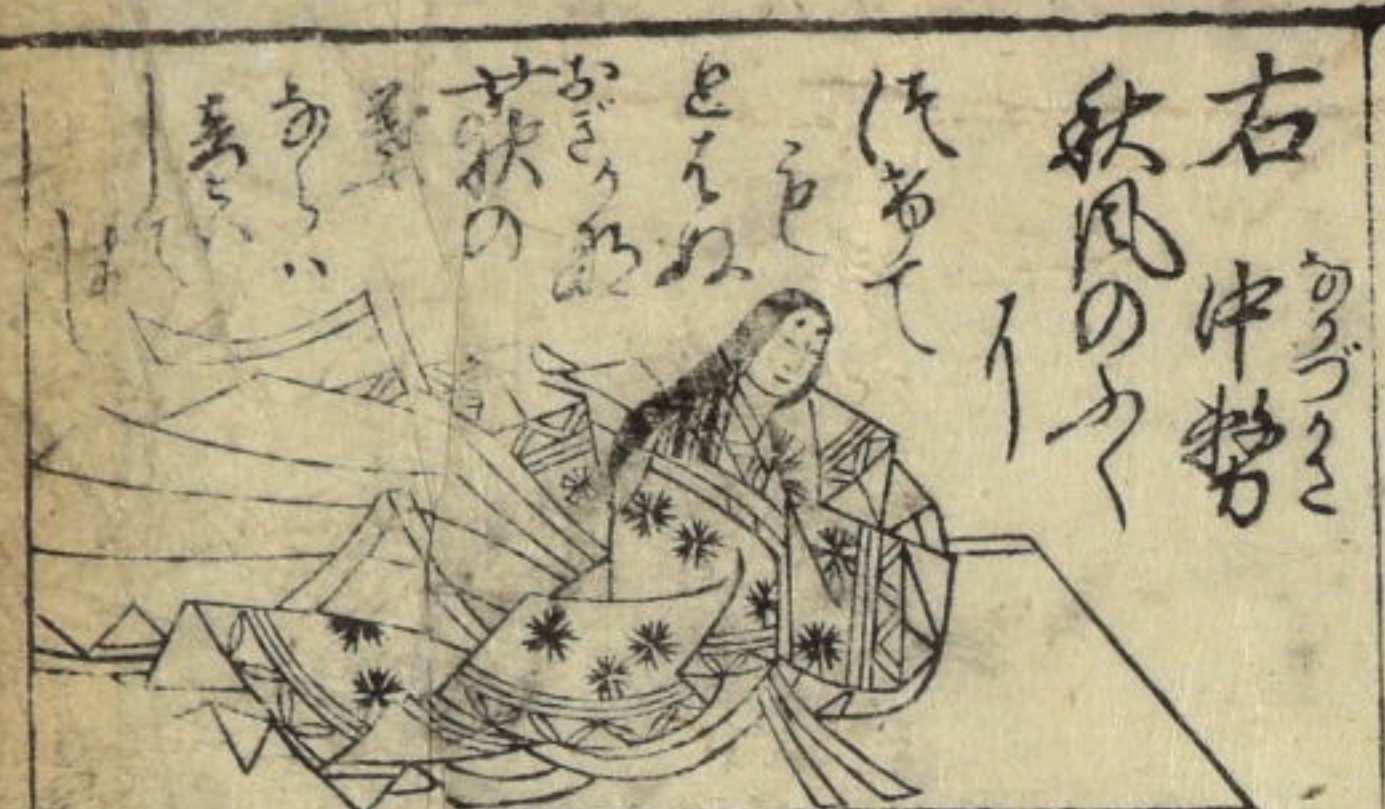 右 中務
なかづかさ
秋風のふく
に
つけて
も
とはぬ
かな
おぎ
荻の
葉
ならハ
音ハ
して
まし